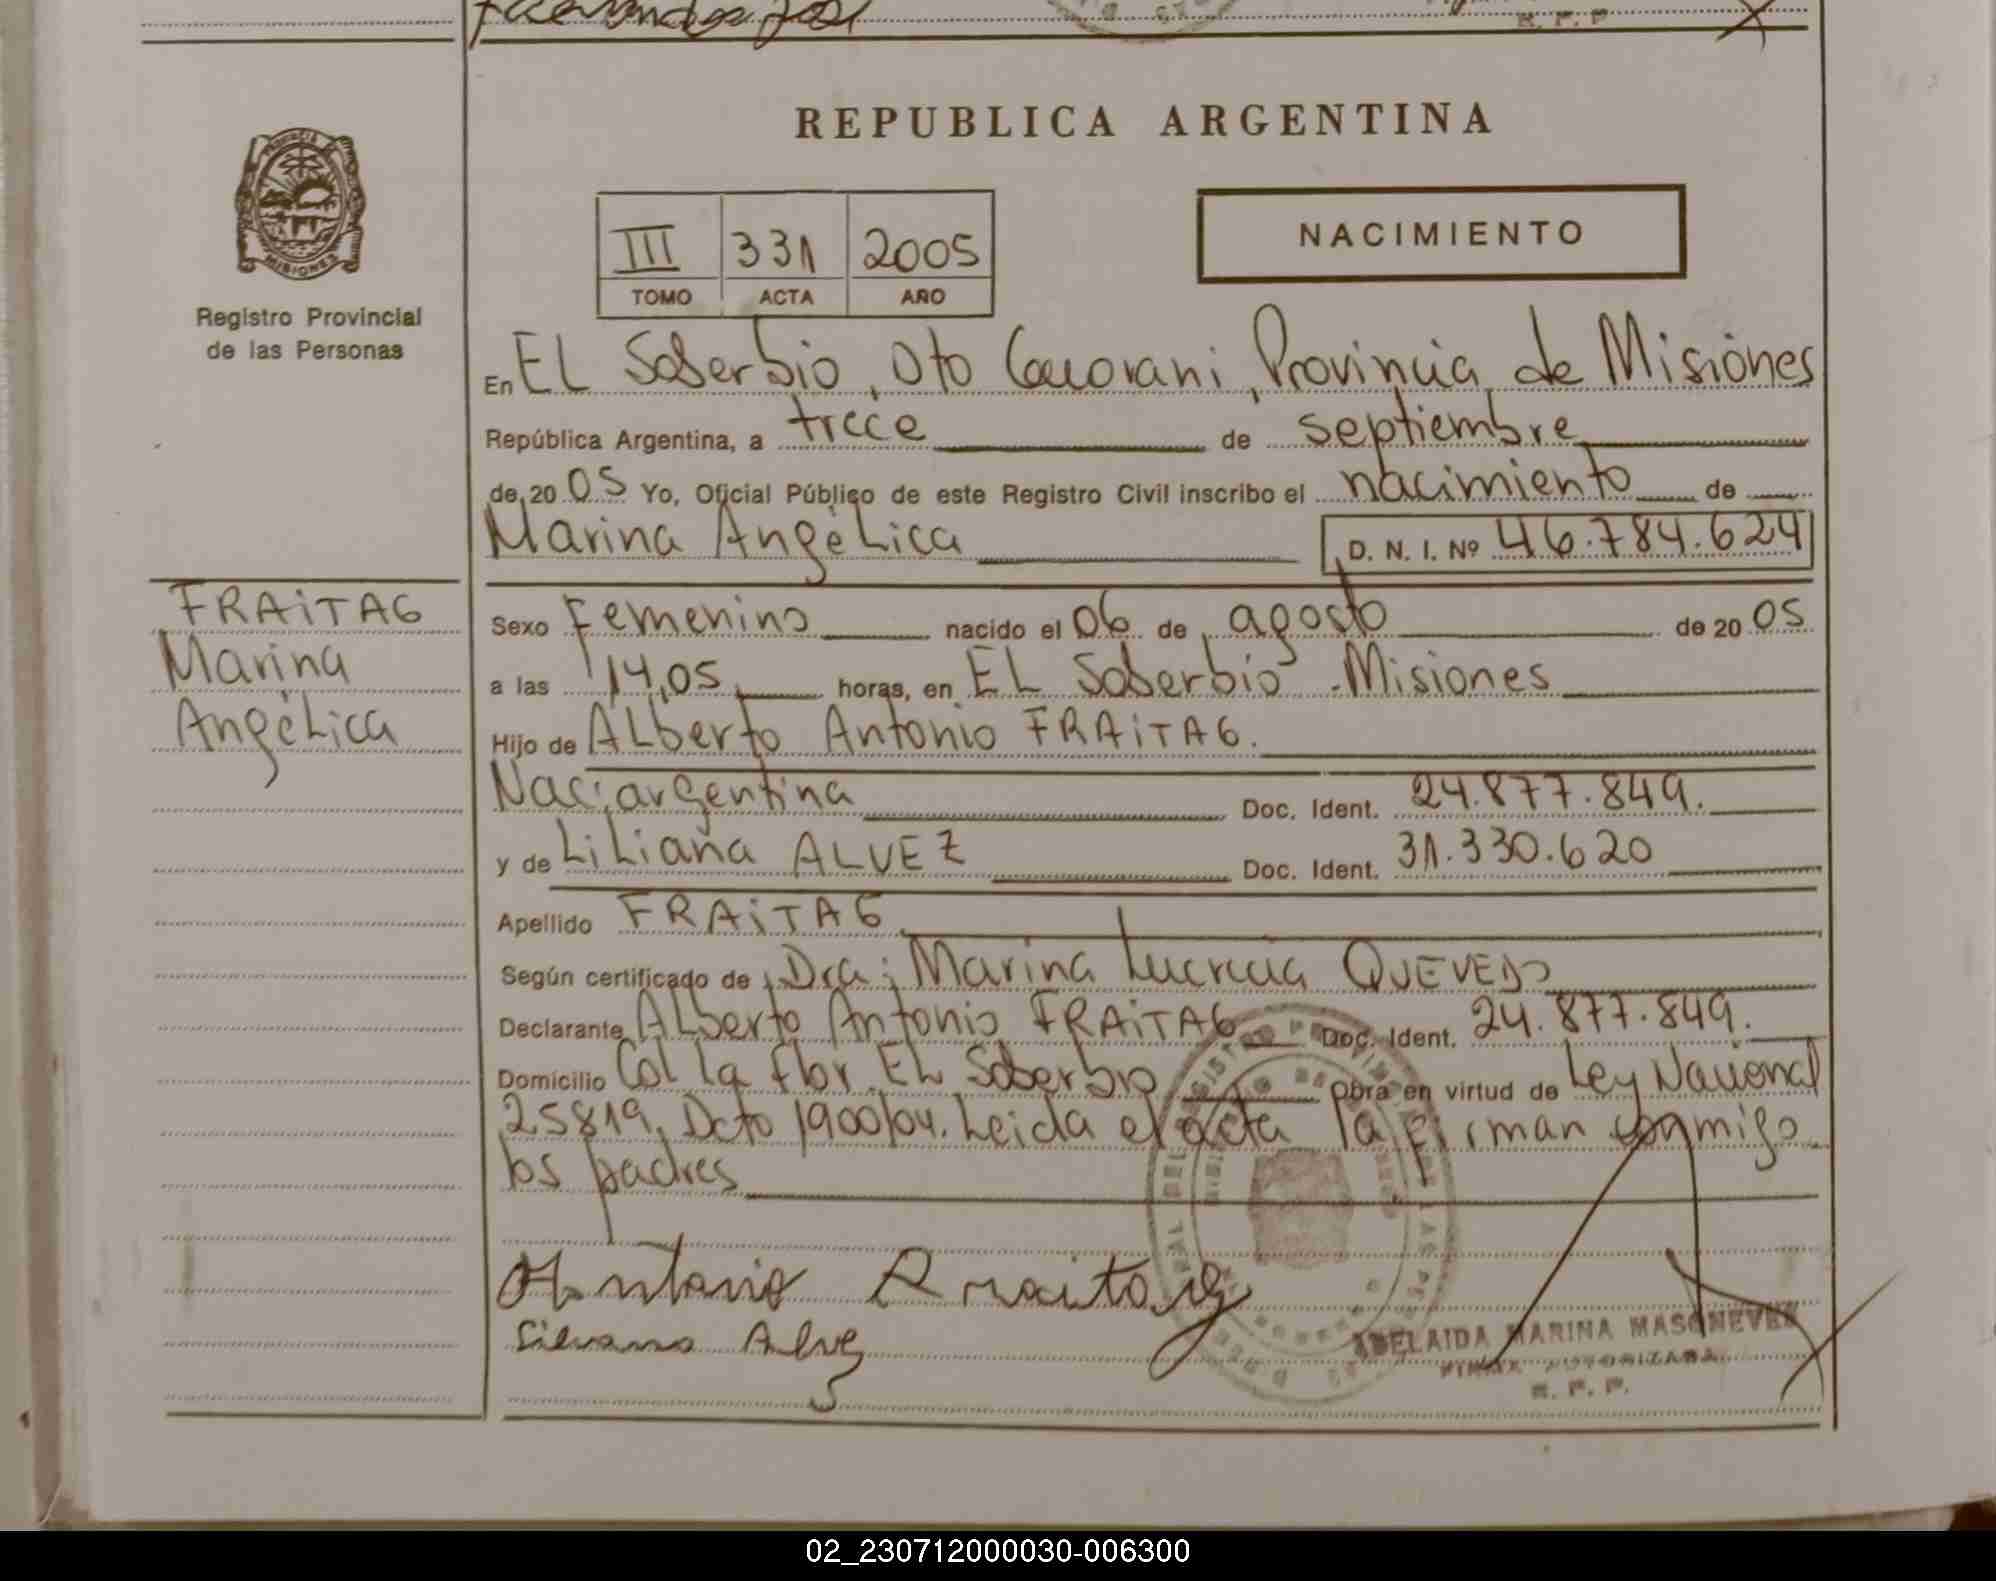 REPUBLICA ARGENTINA
PROVINCIA
MISIONES
Registro Provincial
de las Personas
III 331 2005
TOMO ACTA AÑO
NACIMIENTO
En EL Soberbio, Dto Guarani, Provincia de Misiones
República Argentina, a trece de septiembre
de 20 05 Yo, Oficial Público de este Registro Civil inscribo el nacimiento de
Marina Angélica D. N. I. Nº 46.784.624
FRAiTAG
Marina
Angélica
Sexo Femenino nacido el 06 de agosto de 20 05
a las 14,05 horas, en EL Soberbio - Misiones
Hijo de ALberto Antonio FRAiTAG.
Nac: argentina Doc. Ident. 24.877.849.
y de LiLiana ALVEZ Doc. Ident. 31.330.620
Apellido FRAiTAG
Según certificado de Dra: Marina Lucrecia QUEVEDO
Declarante ALberto Antonio FRAiTAG Doc. Ident. 24.877.849.
Domicilio Col La flor. EL Soberbio Obra en virtud de Ley Nacional
25819, Dcto 1900/04. Leida el acta la firman conmigo
los padres
Antonio
Alvez
ADELAIDA MARINA
FIRMA AUTORIZADA
R. P. P.
02_230712000030-006300